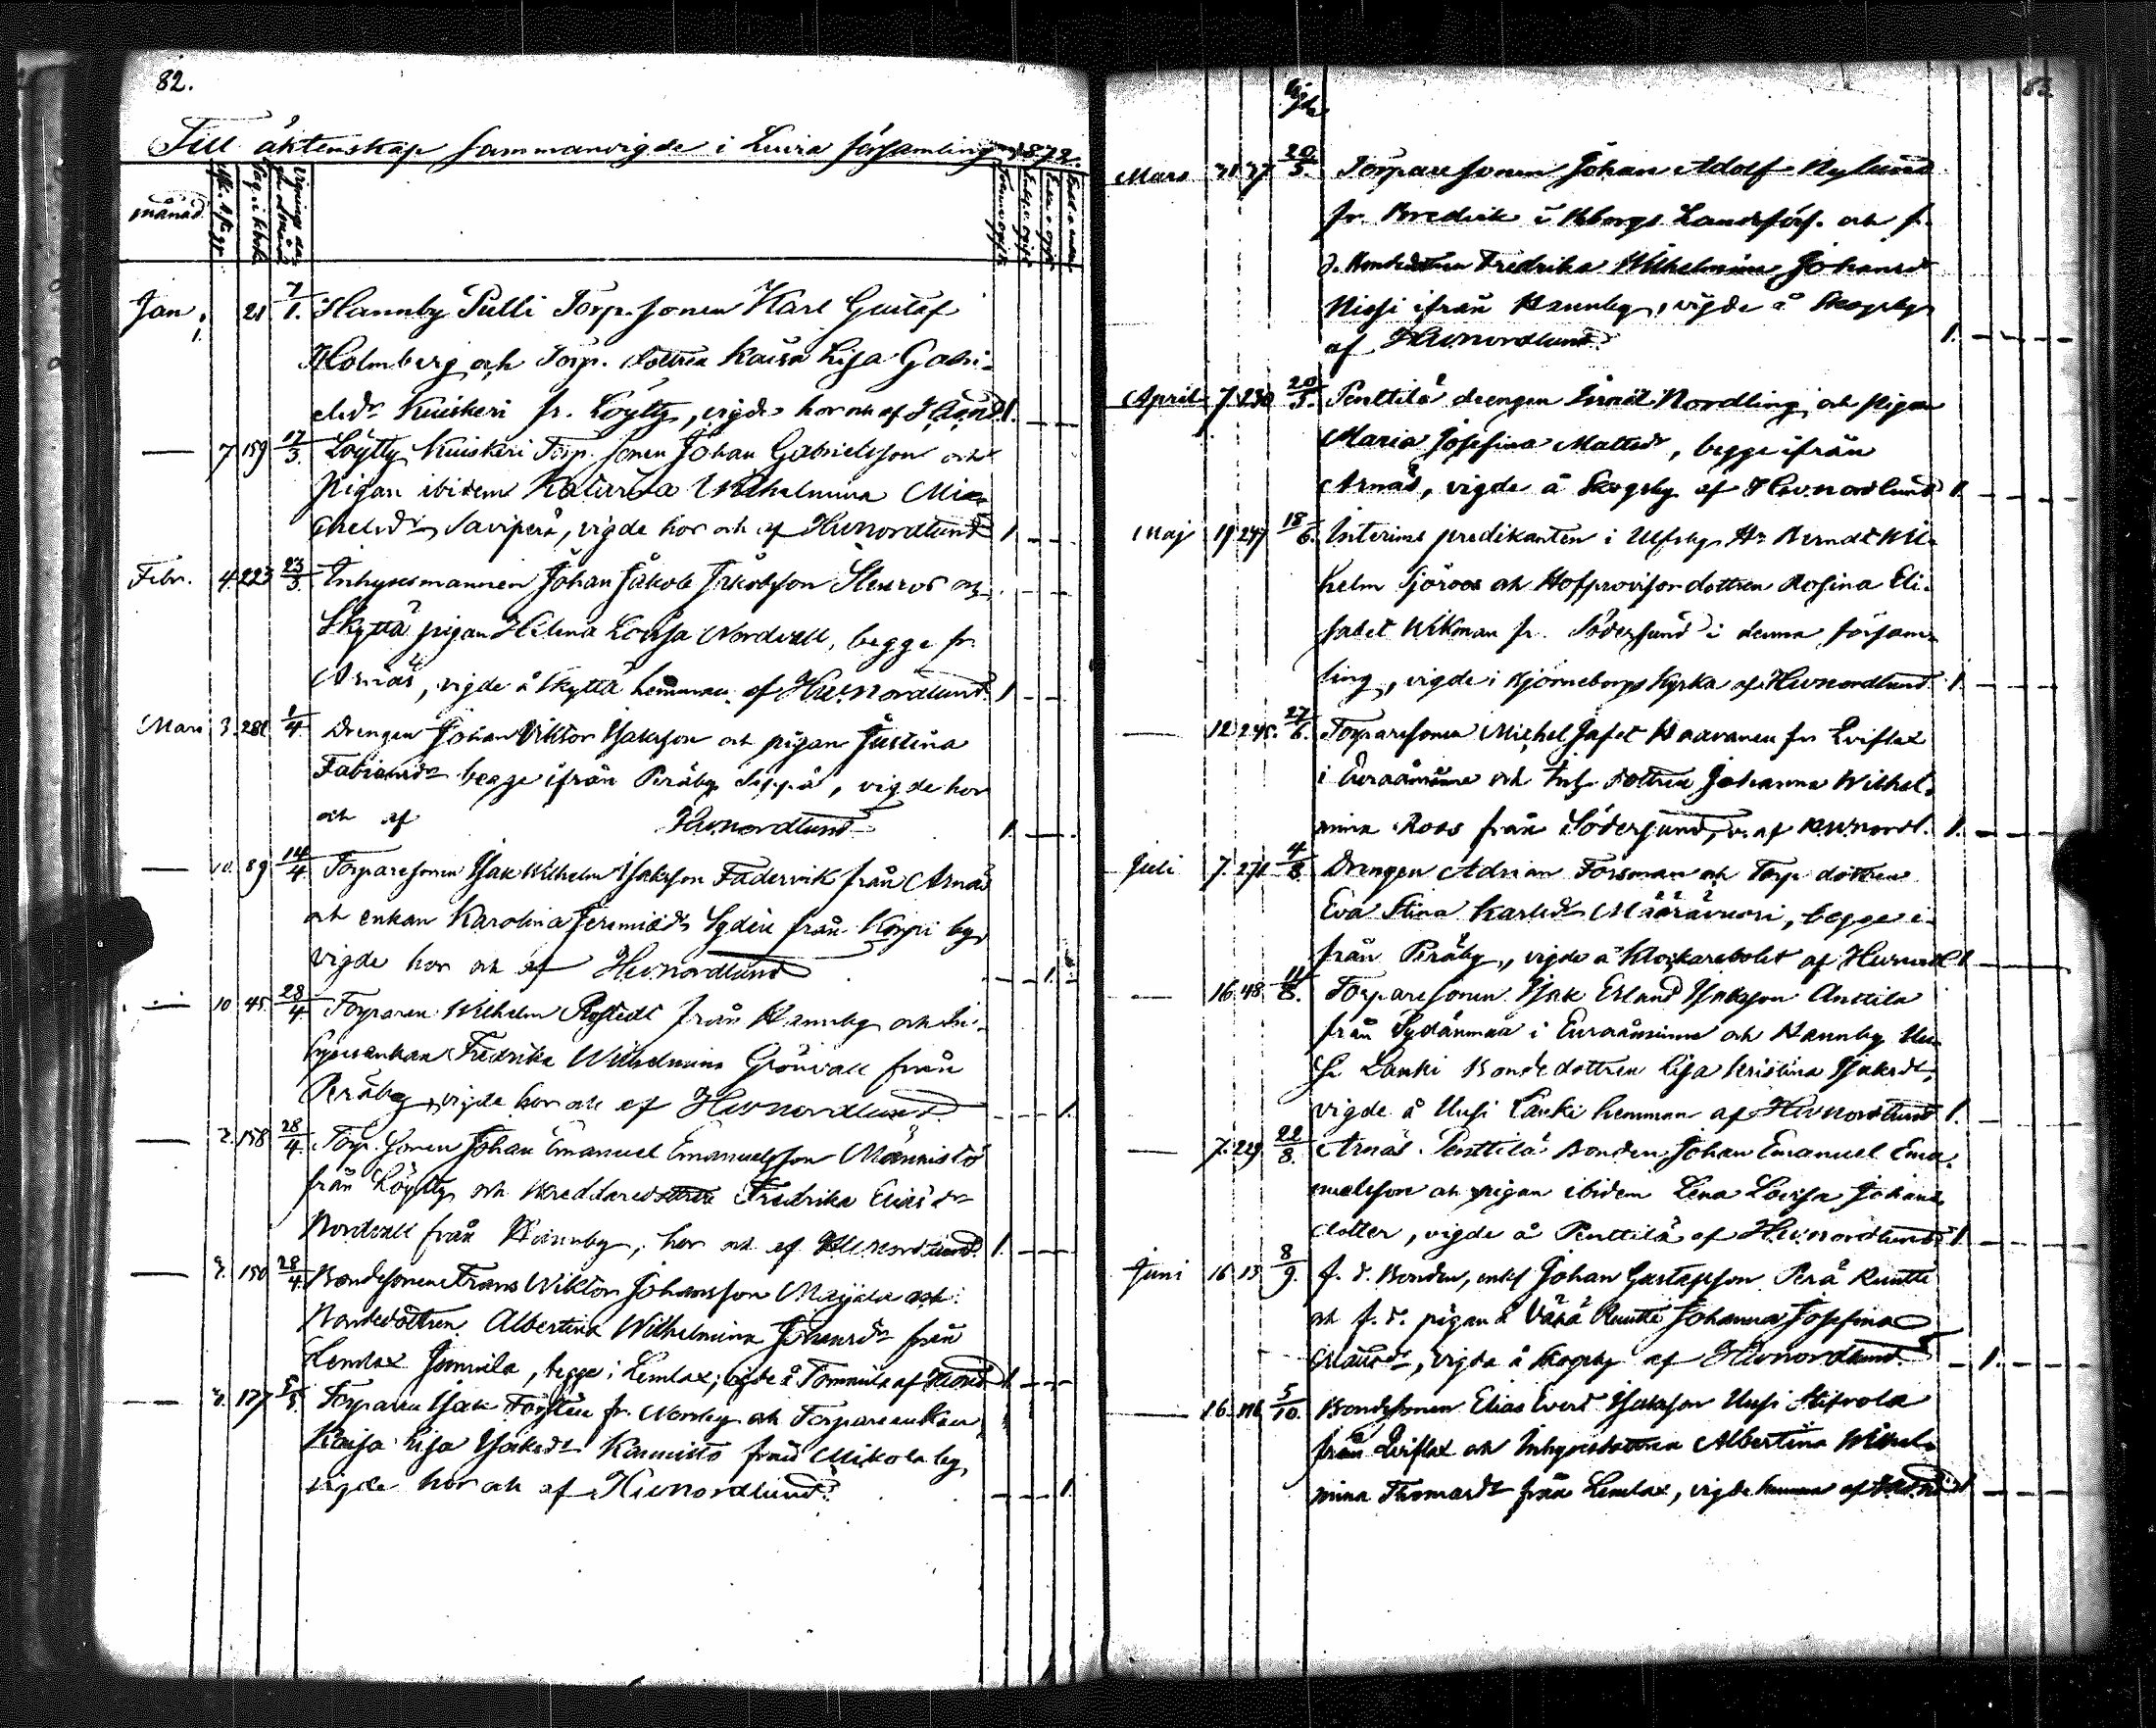 82.
Till äktenskap sammanvigde i Luvia församling 1872.
månad
Jan. 1. 21 7/1. Hannby Pulli Torp. sonen Karl Gustaf
Holmberg och Torp. dottren Kaisa Lisa Gabri-
elsdr Kuiskeri fr. Löytty, vigde hor och af 1.
— 7 159 17/3. Löytty Kuiskeri Torp. sonen Johan Gabrielsson och
pigan ibidem Katarina Wilhelmina Mi-
chelsdr Saviperä, vigde hor och af HWNordlund 1. — —
Febr. 4. 223 23/3. Inhysesmannen Johan Jakob Jakobsson Stenros och
Skyttä pigan Helena Lovisa Nordvall, begge fr.
Arnäs, vigde å Skyttä hemman af HWNordlund. 1. — —
Mars 3. 281 1/4 Drengen Johan Viktor Isaksson och pigan Justina
Fabiansdr begge ifrån Peräby Seppä, vigde hor
och af HWNordlund 1. — —
— 10. 89 14/4. Torparesonen Isak Wilhelm Isaksson Fädervik från Arnäs
och enkan Karolina Jeremiasdr Sydén från Korpi by,
vigde hor och af HWNordlund — — 1. —
— 10 45 28/4. Torparen Wilhelm Rostedt från Hannby och In-
hysesenkan Fredrika Wilhelmina Grönvall från
Peräby, vigde hor och af HWNordlund — — — 1.
— 2. 158 28/4. Torp. sonen Johan Emanuel Emanuelsson Männistö
från Löytty och skreddaredottren Fredrika Eliasdr
Nordvall från Hannby, hor och af HWNordlund. 1. — —
— 3. 150 28/4. Bondesonen Frans Wiktor Johansson Marjala och
Bondedottren Albertina Wilhelmina Johansdr från
Lemlax Tommila, begge i Lemlax, vigde å Tommila af 1. — —
— 3. 177 5/5. Torparen Isak Forstén fr. Norrby och Torpareenkan
Kaisa Lisa Isaksdr Kannisto från Mikola by,
vigde hor och af HWNordlund. — — — 1.
Mars 31 37 20/5. Torparesonen Johan Adolf Nylund
fr. Bredvik i Bborgs Landsförs. och f.
d. Bondedottren Fredrika Wilhelmina Johansdr
Nissi ifrån Hannby, vigde å Skogsby
af HWNordlund. 1. — — —
April 7. 230 20/5. Penttilä drengen Israël Nordling och pigan
Maria Josefina Mattsdr, begge ifrån
Arnäs, vigde å Skogsby af HWNordlund 1. — — —
Maj 19 247 18/6. Interims predikanten i Ulfsby Hr Berndt Wil-
helm Sjöroos och Hofprovisordottren Rosina Eli-
sabet Wikman fr. Södersund i denna försam-
ling, vigde i Björneborgs kyrka af HWNordlund. 1. — — —
— 12 245. 27/6. Torparesonen Michel Jafet Haavanen fr. Lviflax
i Euraåminne och Inh. dottren Johanna Wilhel-
mina Roos från Södersund, v. af HWNordl. 1. — — —
Juli 7. 271 4/8. Drengen Adrian Forsman och Torp. dottren
Eva Stina Karlsdr Määrävuori, begge i-
från Peräby, vigde å Klockarebolet af HWNordl. 1. — — —
— 16. 48 11/8. Torparesonen Isak Erland Isaksson Anttila
från Sydänmaa i Euraåminne och Hannby Uu-
si Lanki Bondedottren Lisa Kristina Isaksdr,
vigde å Uusi Lanki hemman af HWNordlund 1. — — —
— 7. 229 22/8. Arnäs Penttilä Bonden Johan Emanuel Ema-
nuelsson och pigan ibidem Lena Lovisa Johans-
dotter, vigde å Penttilä af HWNordlund. 1. — — —
Juni 16 13 8/9. f. d. Bonden, enkl. Johan Gustafsson Perä Ruutti
och f. d. pigan å Vähä Ruutti Johanna Josefina
Mattsdr, vigda å Skogsby af HWNordlund. — 1. — —
— 16. 5/10. Bondesonen Elias Evert Isaksson Uusi
från Lviflax och Inhysesdottren Albertina Wilhel-
mina Thomasdr från Lemlax, vigde af 1. — — —